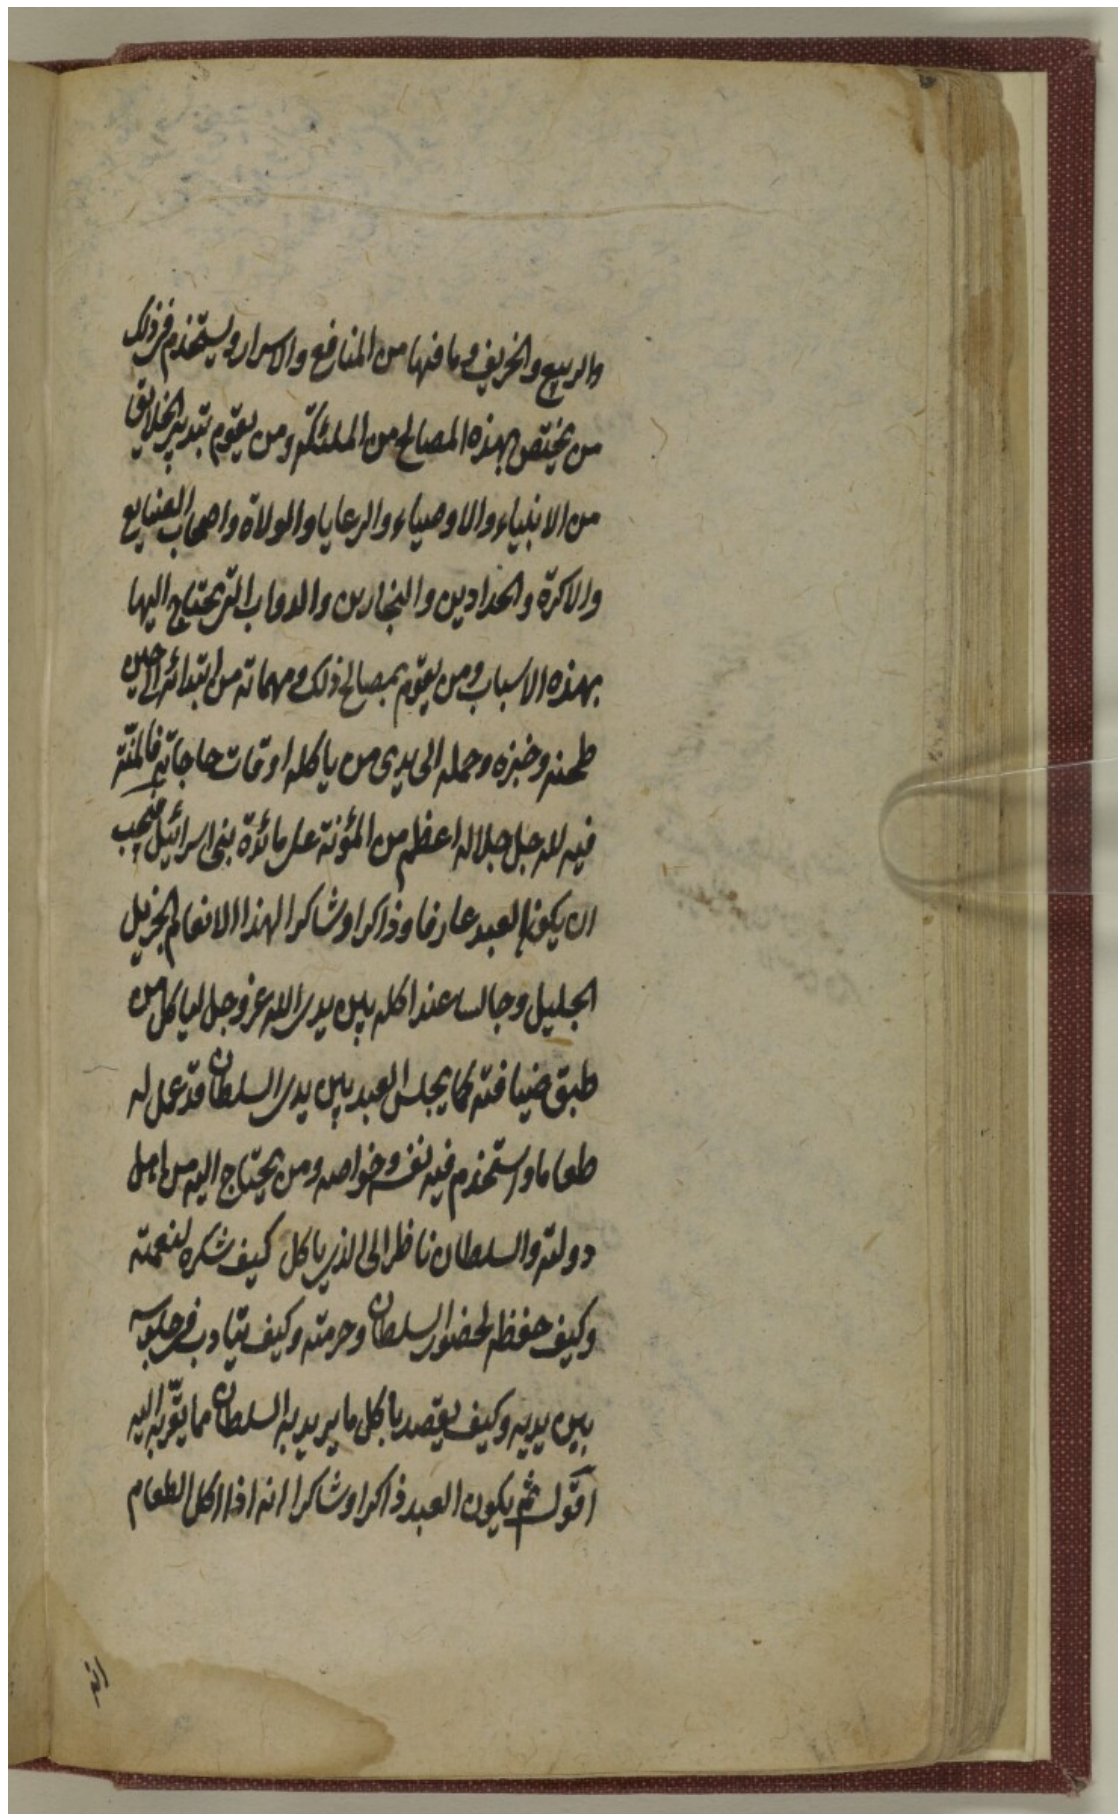 والربيع والخريف وما فيها من المنافع والاسرار ويستخدم في ذلك
من يختص بهذه المصالح من الملئكة ومن يقوم بتدبير الخلايق
من الانبياء والاوصياء والرعايا والولاة واصحاب الصنايع
والاكرة والحدادين والنجارين والدواب التي يحتاج اليها
بهذه الاسباب ومن يقوم بمصالح ذلك ومهماته من ابتدائه الى حين
طحنه وخبزه وحمله الى يدى من ياكله اوقات حاجاته فالمنة
فيه لله جل جلاله اعظم من المؤنة على مائدة بنى اسرائيل فيجب
ان يكون العبد عارفا وذاكرا وشاكرا لهذا الانعام الجزيل
الجليل وجالسا عند اكله بين يدى الله عز وجل لياكل من
طبق ضيافته كما يجلس العبد بين يدى السلطان قد عمل له
طعاما واستخدم فيه نفسه وخواصه ومن يحتاج اليه من اهل
دولته والسلطان ناظر الى الذى ياكل كيف شكره لنعمته
وكيف حفظه لحضور السلطان وحرمته وكيف يتادب فى جلوسه
بين يديه وكيف يقصد باكل ما يريد به السلطان مما يقربه اليه
اقول ثم يكون العبد ذاكرا وشاكرا انه اذا اكل الطعام
انه